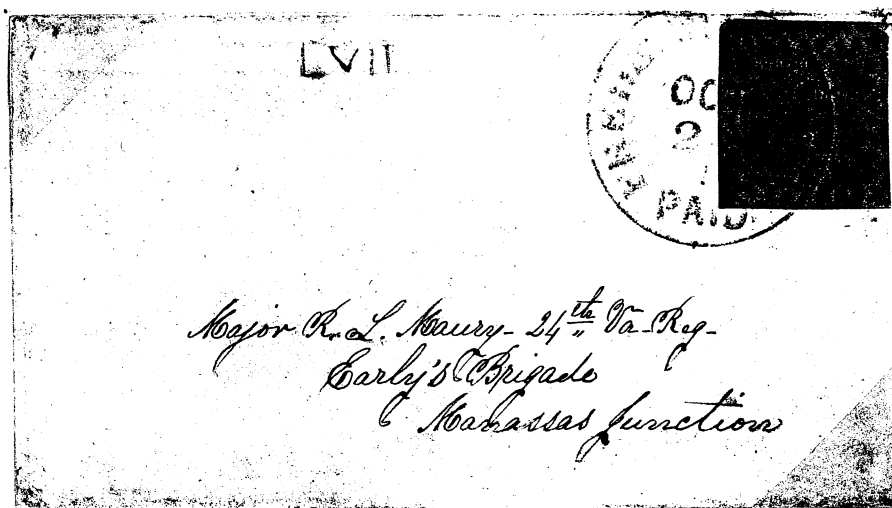 LVII
OC
2
PAID
Major R. L. Maury - 24th Va - Reg -
Early's Brigade
Manassas Junction